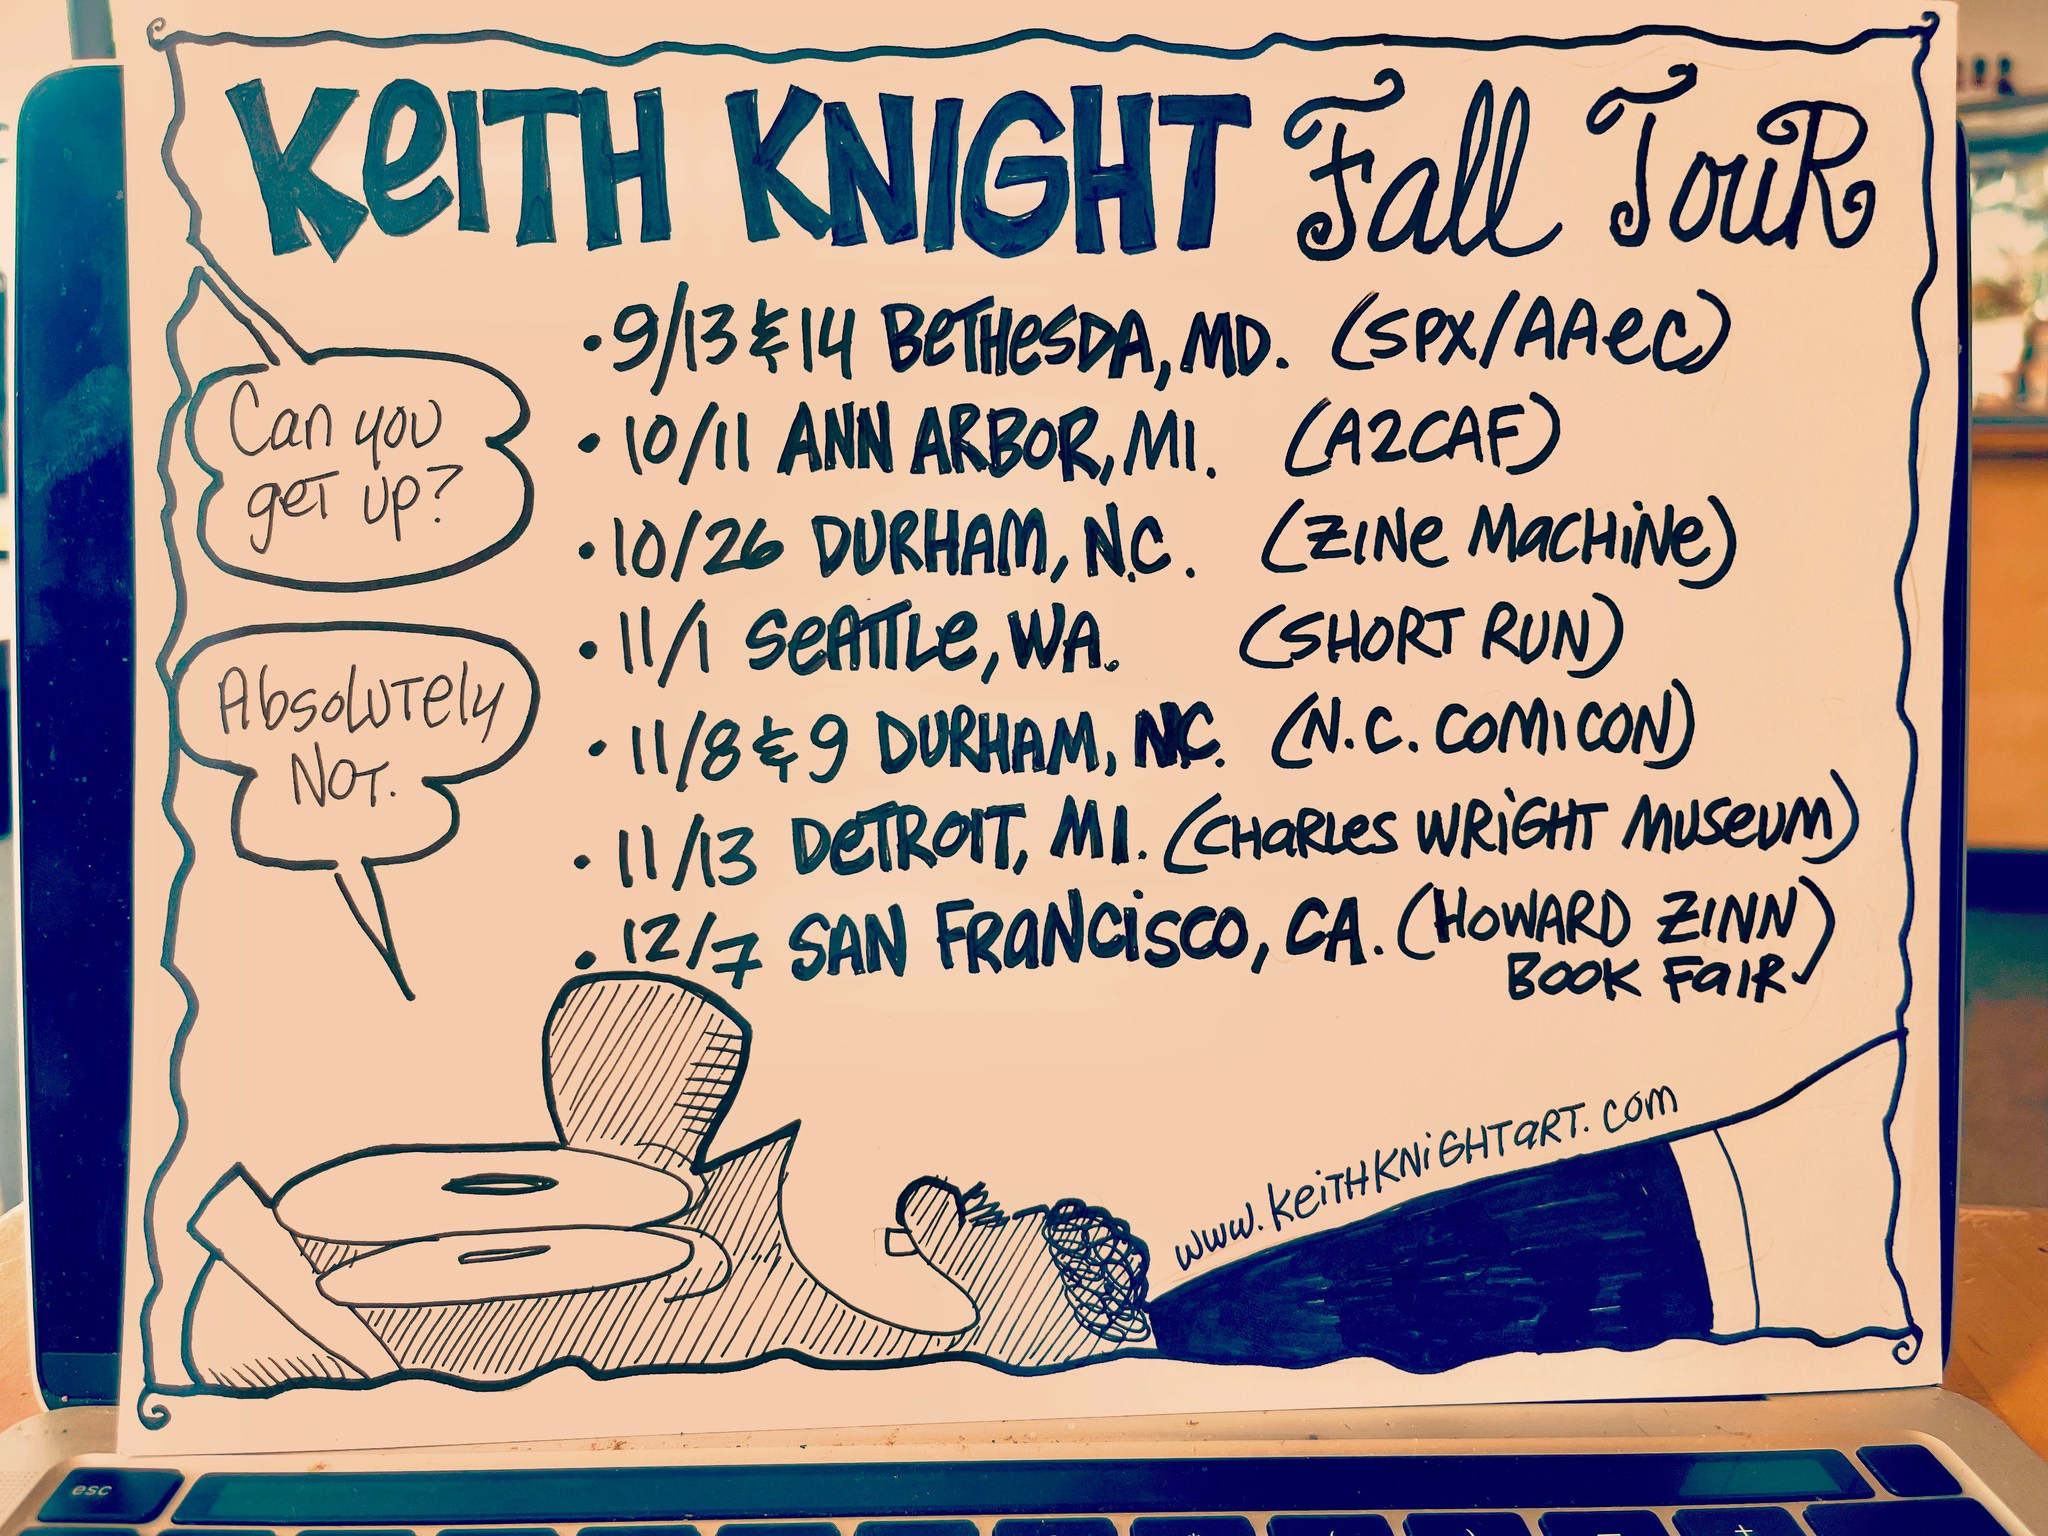 KeITH KNIGHT Fall TouR
Can you
get up?
Absolutely
NOT.
• 9/13 & 14 BeTHesDA, MD. (SPX/AAeC)
• 10/11 ANN ARBOR, MI. (A2CAF)
• 10/26 DURHAM, N.C. (ZINe MacHiNe)
• 11/1 SeATTLe, WA. (SHORT RUN)
• 11/8 & 9 DURHAM, N.C. (N.C. COMICON)
• 11/13 DeTROIT, MI. (CHaRLes WRiGHT MUSeUM)
• 12/7 SAN FRaNCiSCO, CA. (HOWARD ZINN
BOOK FaIR)
www.KeiTHKNiGHTaRT.com
esc